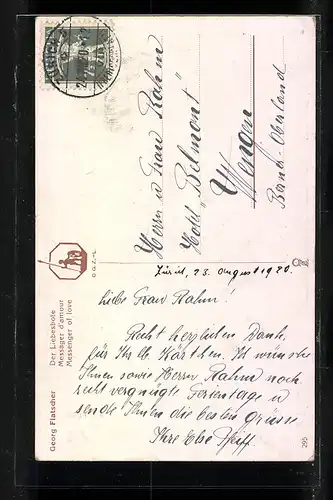 Herrn u Frau Rahm
Hotel "Belmont"
Wengen
Berner Oberland
Zürich, 23. August 1920.
Liebe Frau Rahm!
Recht herzlichen Dank
für Ihr Kärtchen. Ich wünsche
Ihnen sowie Herrn Rahm noch
recht vergnügte Ferientage u
sende Ihnen die besten Grüsse
Ihre Else Pfeiff.
Georg Flatscher
Der Liebesbote
Messager d'amour
Messenger of love
O.G.Z.-L.
295